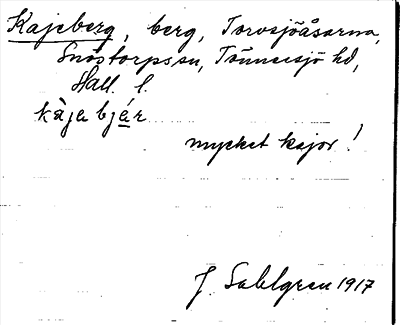 Kajeberg, berg, Torvsjöåsarna,
Snöstorpssn, Tönnersjö hd,
Hall. l.
kàjabjár
mycket kajor!
J. Sahlgren 1917